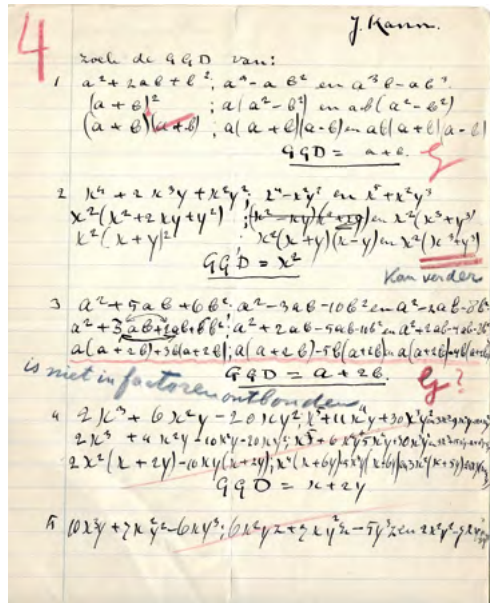 4
J. Kann.
zoek de GGD van:
1 a² + 2ab + b²; a³ - ab² en a³b - ab³.
(a + b)² ; a(a² - b²) en ab(a² - b²)
(a + b)(a + b) ; a(a + b)(a - b) en ab(a + b)(a - b)
GGD = a + b. G
2 x⁴ + 2x³y + x²y²; x⁴ - x²y² en x⁵ + x²y³
x²(x² + 2xy + y²) ; en x²(x³ + y³)
x²(x + y)² x²(x + y)(x - y) en x²(x³ + y³)
GGD = x²
Kan verder
3 a² + 5ab + 6b²; a² - 3ab - 10b² en a² - 2ab - 8b²
a² + 3ab + 2ab + 6b²; a² + 2ab - 5ab - 10b² en a² + 2ab - 4ab - 8b²
a(a + 2b) + 3b(a + 2b); a(a + 2b) - 5b(a + 2b) en a(a + 2b) - 4b(a + 2b)
GGD = a + 2b. G?
is niet in factoren ontbonden
4 2x³ + 6x²y - 20xy²; x⁵ + 11x⁴y + 30x³y²
2x³ + x²y - 10x²y - 20xy²; x⁵ + 6x⁴y
2x²(x + 2y) - 10xy(x + 2y); x⁴(x + 6y)
GGD = x + 2y
5 10x³y + 7x²y² - 6xy³; 6x²yz + 7xy²z - 5y³z en